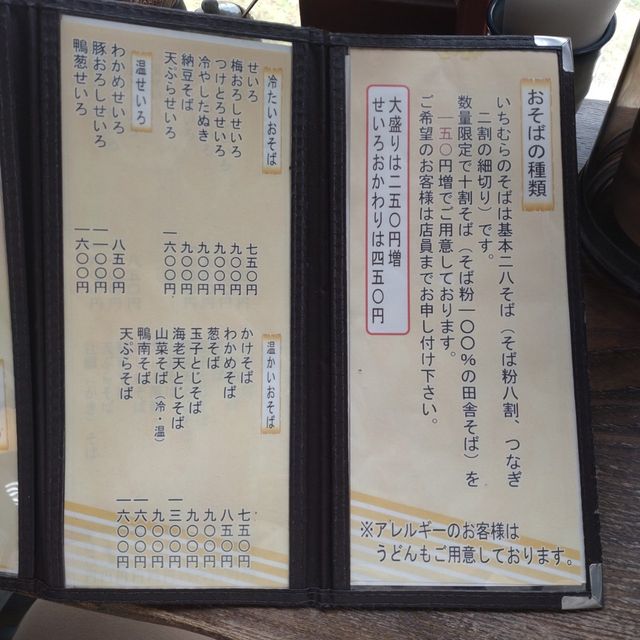 おそばの種類
いちむらのそばは基本二八そば（そば粉八割、つなぎ
二割の細切り）です。
数量限定で十割そば（そば粉一〇〇%の田舎そば）を
一五〇円増でご用意しております。
ご希望のお客様は店員までお申し付け下さい。
大盛りは二五〇円増
せいろおかわりは四五〇円
※アレルギーのお客様は
うどんもご用意しております。
冷たいおそば
せいろ 七五〇円
梅おろしせいろ 九〇〇円
つけとろせいろ 九〇〇円
冷やしたぬき 九〇〇円
納豆そば 九〇〇円
天ぷらせいろ 一六〇〇円
温せいろ
わかめせいろ 八五〇円
豚おろしせいろ 一一〇〇円
鴨葱せいろ 一六〇〇円
温かいおそば
かけそば 七五〇円
わかめそば 八五〇円
葱そば 九〇〇円
玉子とじそば 九〇〇円
海老天とじそば 一三〇〇円
山菜そば（冷・温） 九〇〇円
鴨南そば 一六〇〇円
天ぷらそば 一六〇〇円